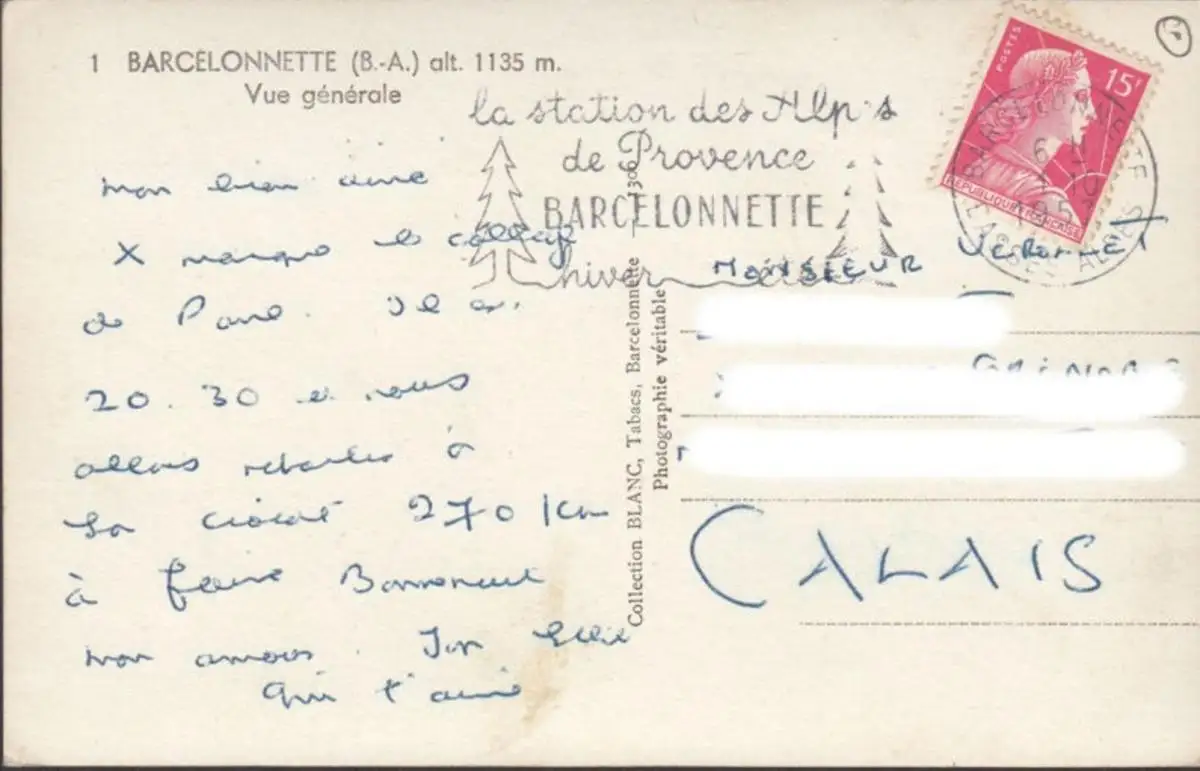 1 BARCELONNETTE (B.-A.) alt. 1135 m.
Vue générale
la station des Alp s
de Provence
BARCELONNETTE
hiver
POSTES
15F
REPUBLIQUE FRANCAISE
BARCELONNETTE
BASSES ALPES
mon bien aimé
X marque le
de Paul. Il est
20.30 et nous
allons à
la ciotat 270 km
à faire
mon amour. Ton
qui t'aime
Collection BLANC, Tabacs, Barcelonnette
Photographie véritable
MONSIEUR
CALAIS